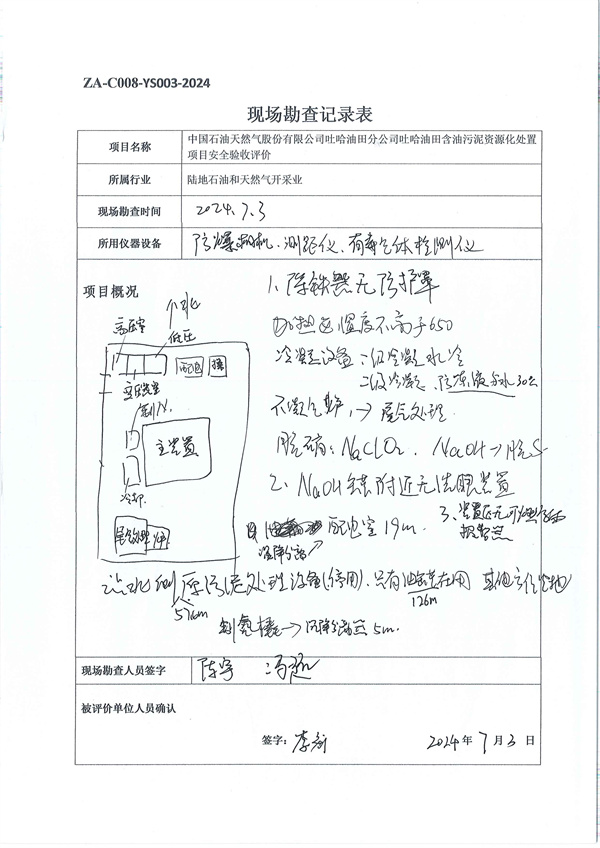 ZA-C008-YS003-2024
现场勘查记录表
项目名称
中国石油天然气股份有限公司吐哈油田分公司吐哈油田含油污泥资源化处置
项目安全验收评价
所属行业
陆地石油和天然气开采业
现场勘查时间
2024.7.3
所用仪器设备
防爆相机、测距仪、有毒气体检测仪
项目概况
1、除铁器无防护罩
加热 温度不高于650
冷凝设备:一级冷凝 水冷
二级冷凝
不凝气 → 尾气处理
NaClO₂、NaOH → 脱S
2、NaOH 附近无洗眼装置
3、装置区无可燃
报警器
高压室
低压
配电
变压
制N₂
主装置
冷却
配电室 19m.
污泥处理设备(停用),只有 在用 其他方位空地
57m
126m
制氮橇 → 5m.
现场勘查人员签字
陈宇
冯超
被评价单位人员确认
签字:李新
2024年 7月3日